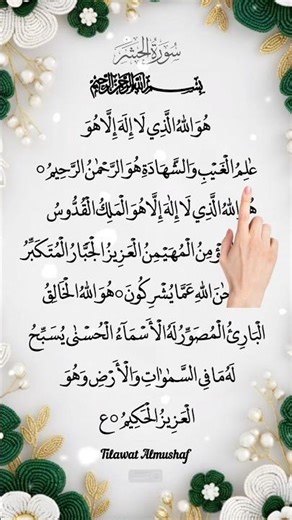 سُورَةُ الْحَشْرِ
بِسْمِ اللهِ الرَّحْمٰنِ الرَّحِيْمِ
هُوَ اللهُ الَّذِي لَا إِلَهَ إِلَّا هُوَ
عٰلِمُ الْغَيْبِ وَالشَّهَادَةِ هُوَ الرَّحْمٰنُ الرَّحِيْمُ ○
اللهُ الَّذِي لَا إِلٰهَ إِلَّا هُوَ الْمَلِكُ الْقُدُّوسُ
الْمُهَيْمِنُ الْعَزِيزُ الْجَبَّارُ الْمُتَكَبِّرُ
اللهِ عَمَّا يُشْرِكُونَ ○ هُوَ اللهُ الْخَالِقُ
الْبَارِئُ الْمُصَوِّرُ لَهُ الْأَسْمَاءُ الْحُسْنٰى يُسَبِّحُ
لَهُ مَا فِي السَّمٰوَاتِ وَالْأَرْضِ وَهُوَ
الْعَزِيزُ الْحَكِيْمُ ○ ع
Tilawat Almushaf